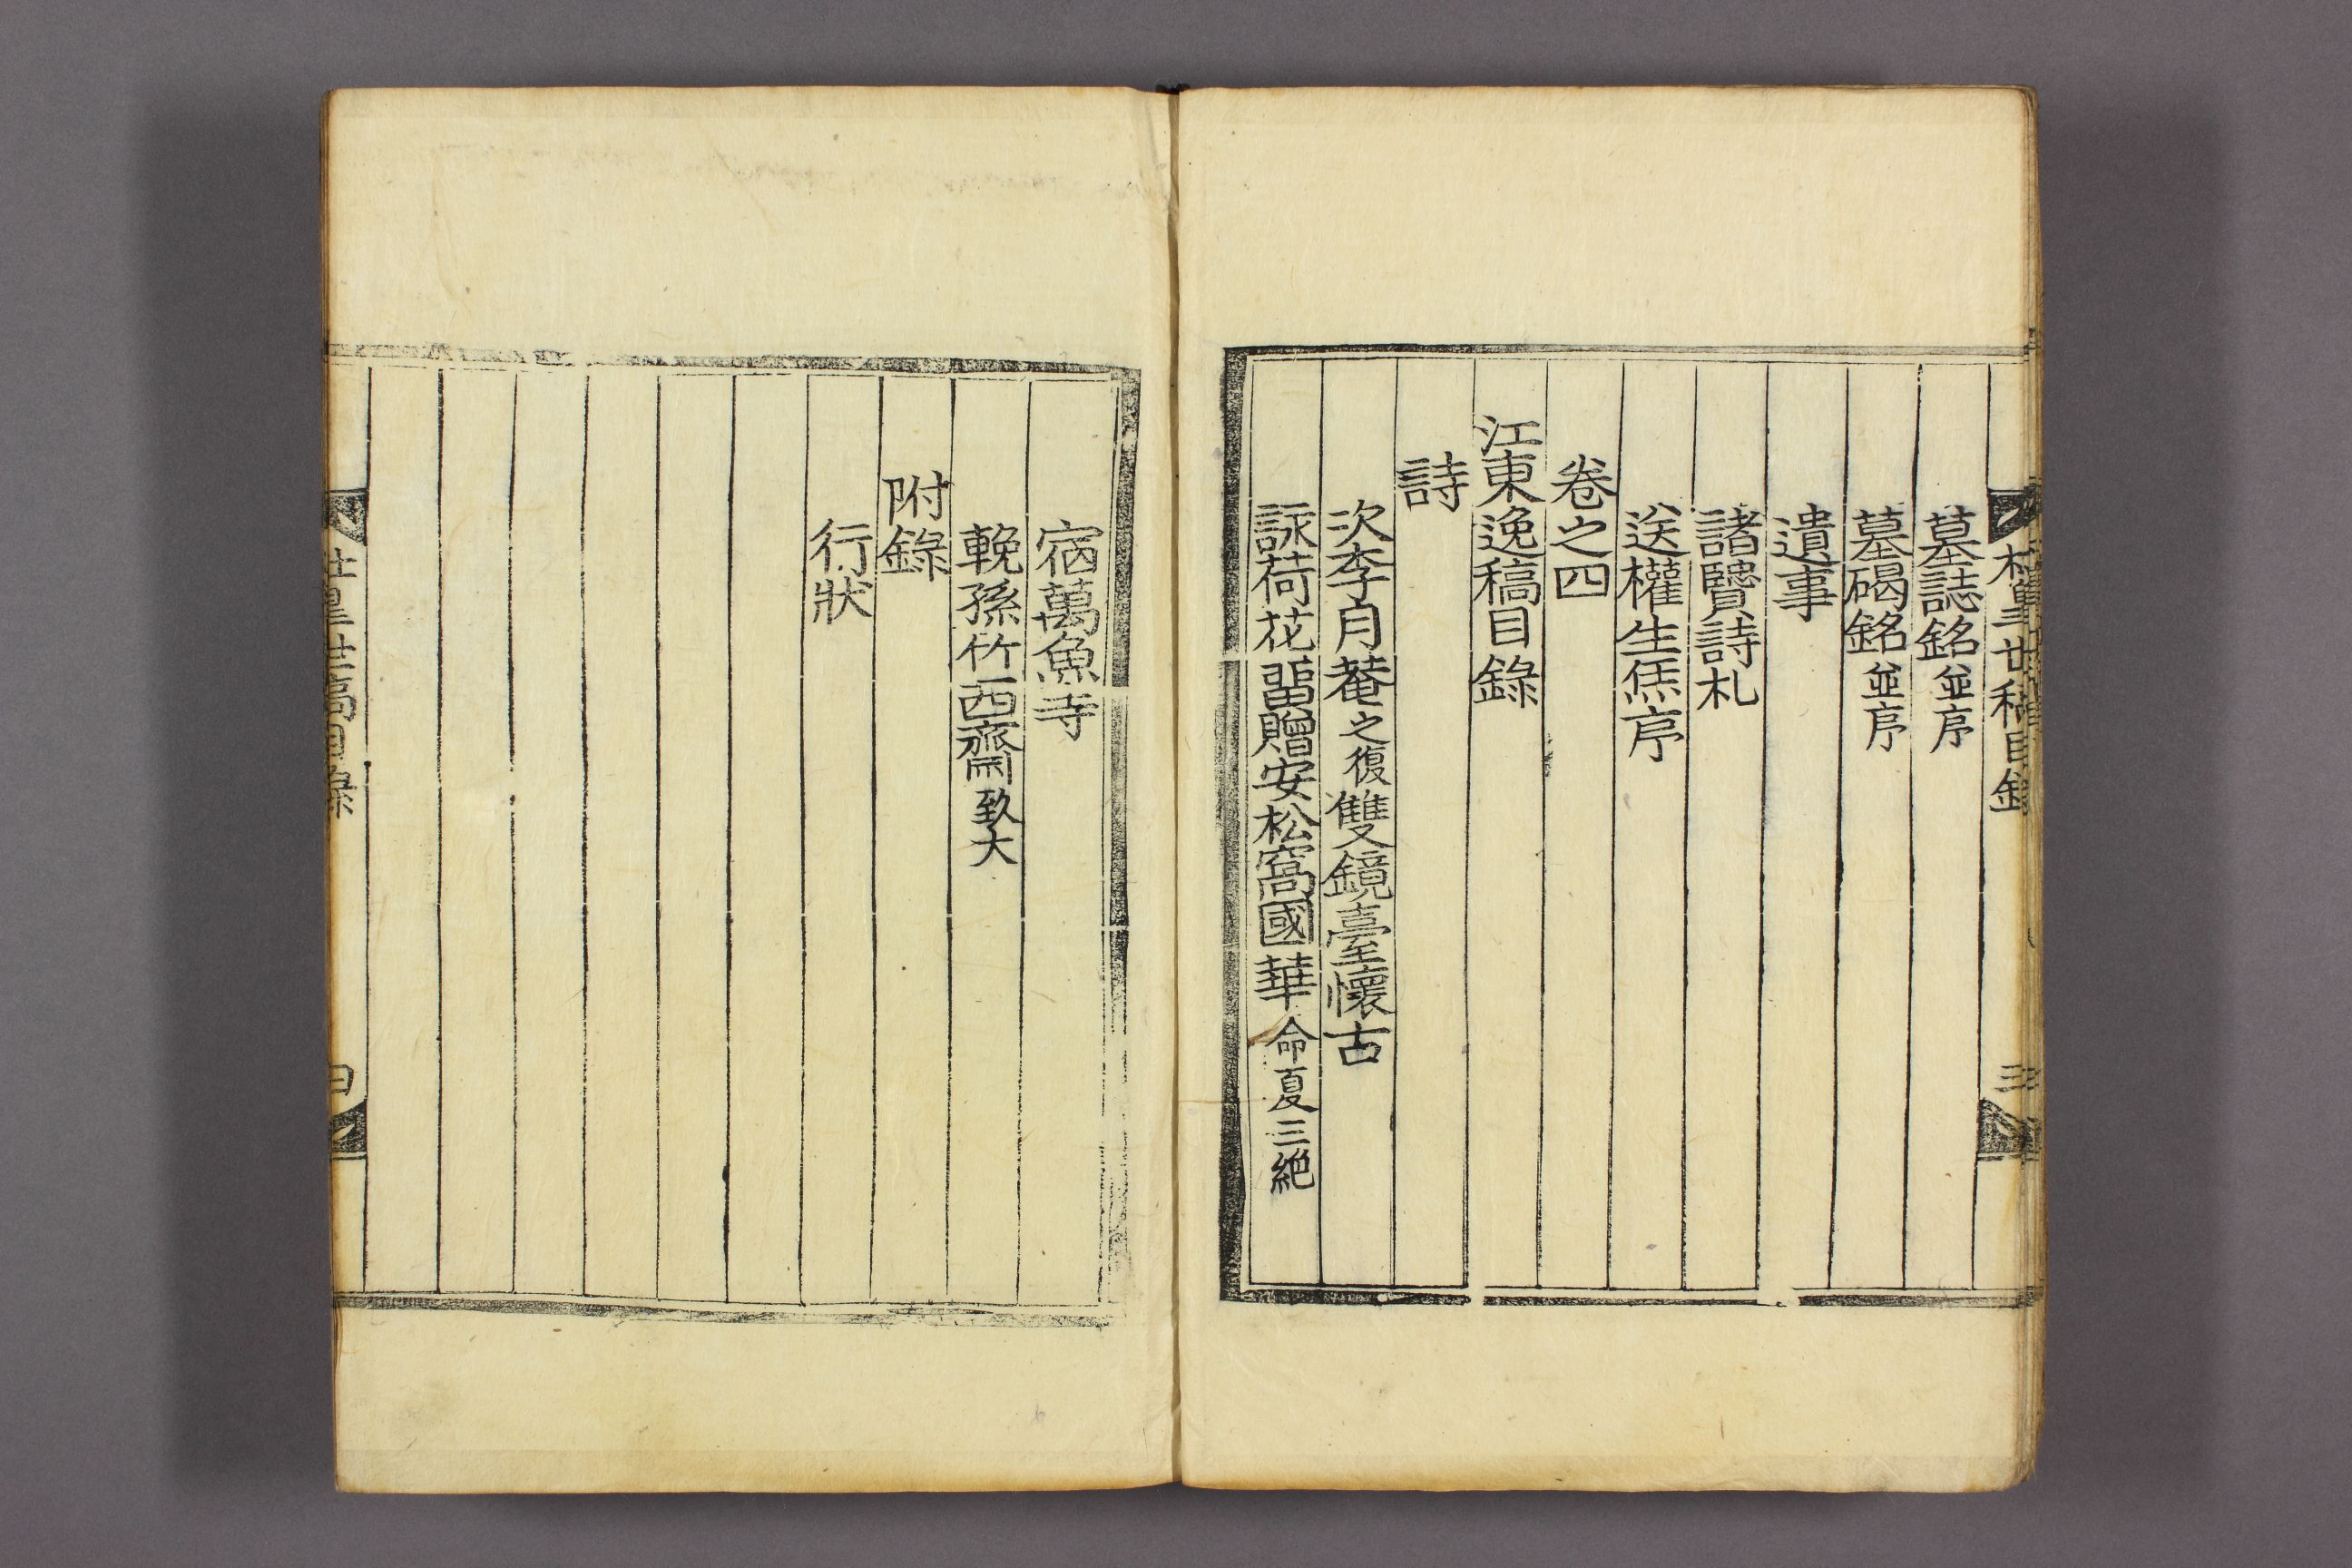 墓誌銘並序
墓碣銘並序
遺事
諸賢詩札
送權生焦序
卷之四
江東逸稿目錄
詩
次李月菴之復雙鏡臺懷古
詠荷花畱贈安松窩國華命夏三絕
宿萬魚寺
輓孫竹西齋㙜大
附錄
行狀